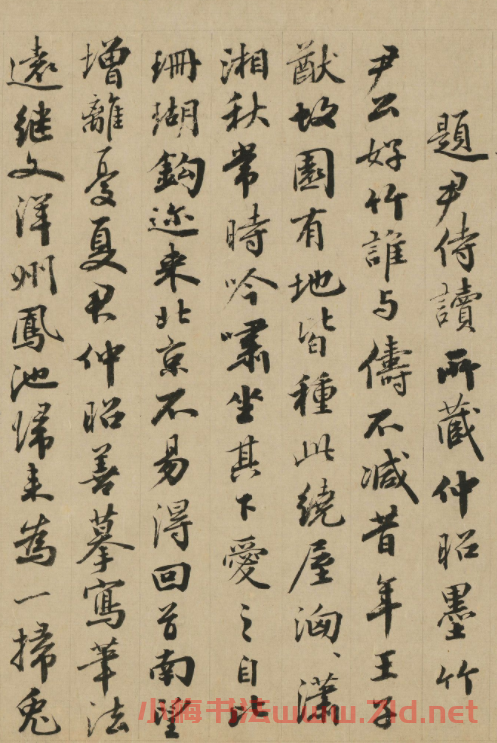 題尹侍讀所藏仲昭墨竹
尹公好竹誰与儔不减昔年王子
猷故園有地皆種此繞屋泂、瀟
湘秋常時吟嘯坐其下愛之自比
珊瑚鈎迩来北京不易得回首南望
增離憂夏君仲昭善摹寫筆法
遠继文洋州鳳池归来為一掃兔
小梅书法www.7ld.net